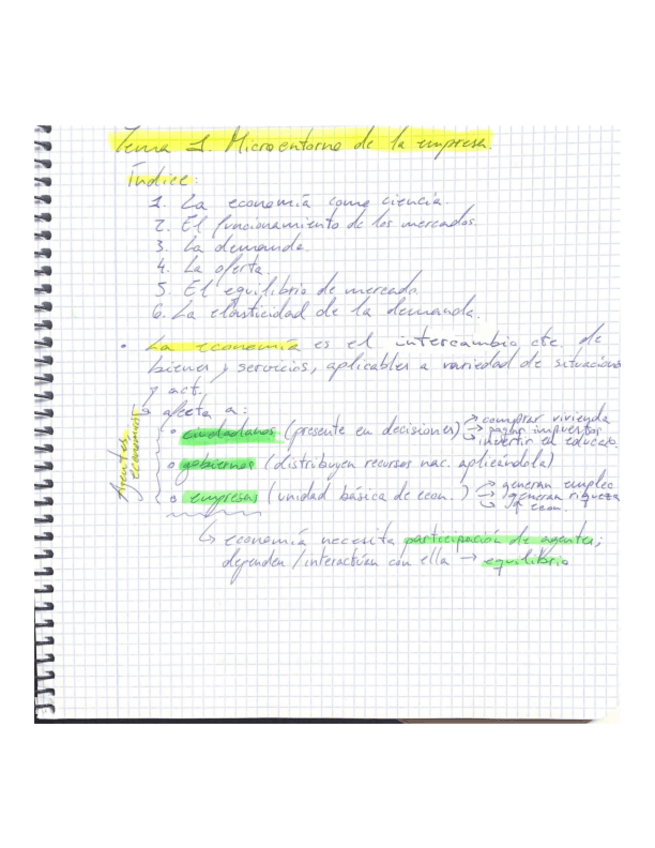 Tema 1. Microentorno de la empresa.
Índice:
1. La economía como ciencia.
2. El funcionamiento de los mercados.
3. La demanda.
4. La oferta.
5. El equilibrio de mercado.
6. La elasticidad de la demanda.
• La economía es el intercambio, etc. de
bienes y servicios, aplicables a variedad de situaciones
y act.
↳ afecta a:
Agentes económicos
• ciudadanos (presente en decisiones) → comprar vivienda
→ pagar impuestos
→ invertir en educac.
• gobiernos (distribuyen recursos nac. aplicándola)
• empresas (unidad básica de econ.) → generan empleo
→ generan riqueza
→ econ.
↳ economía necesita participación de agentes;
dependen / interactúan con ella → equilibrio